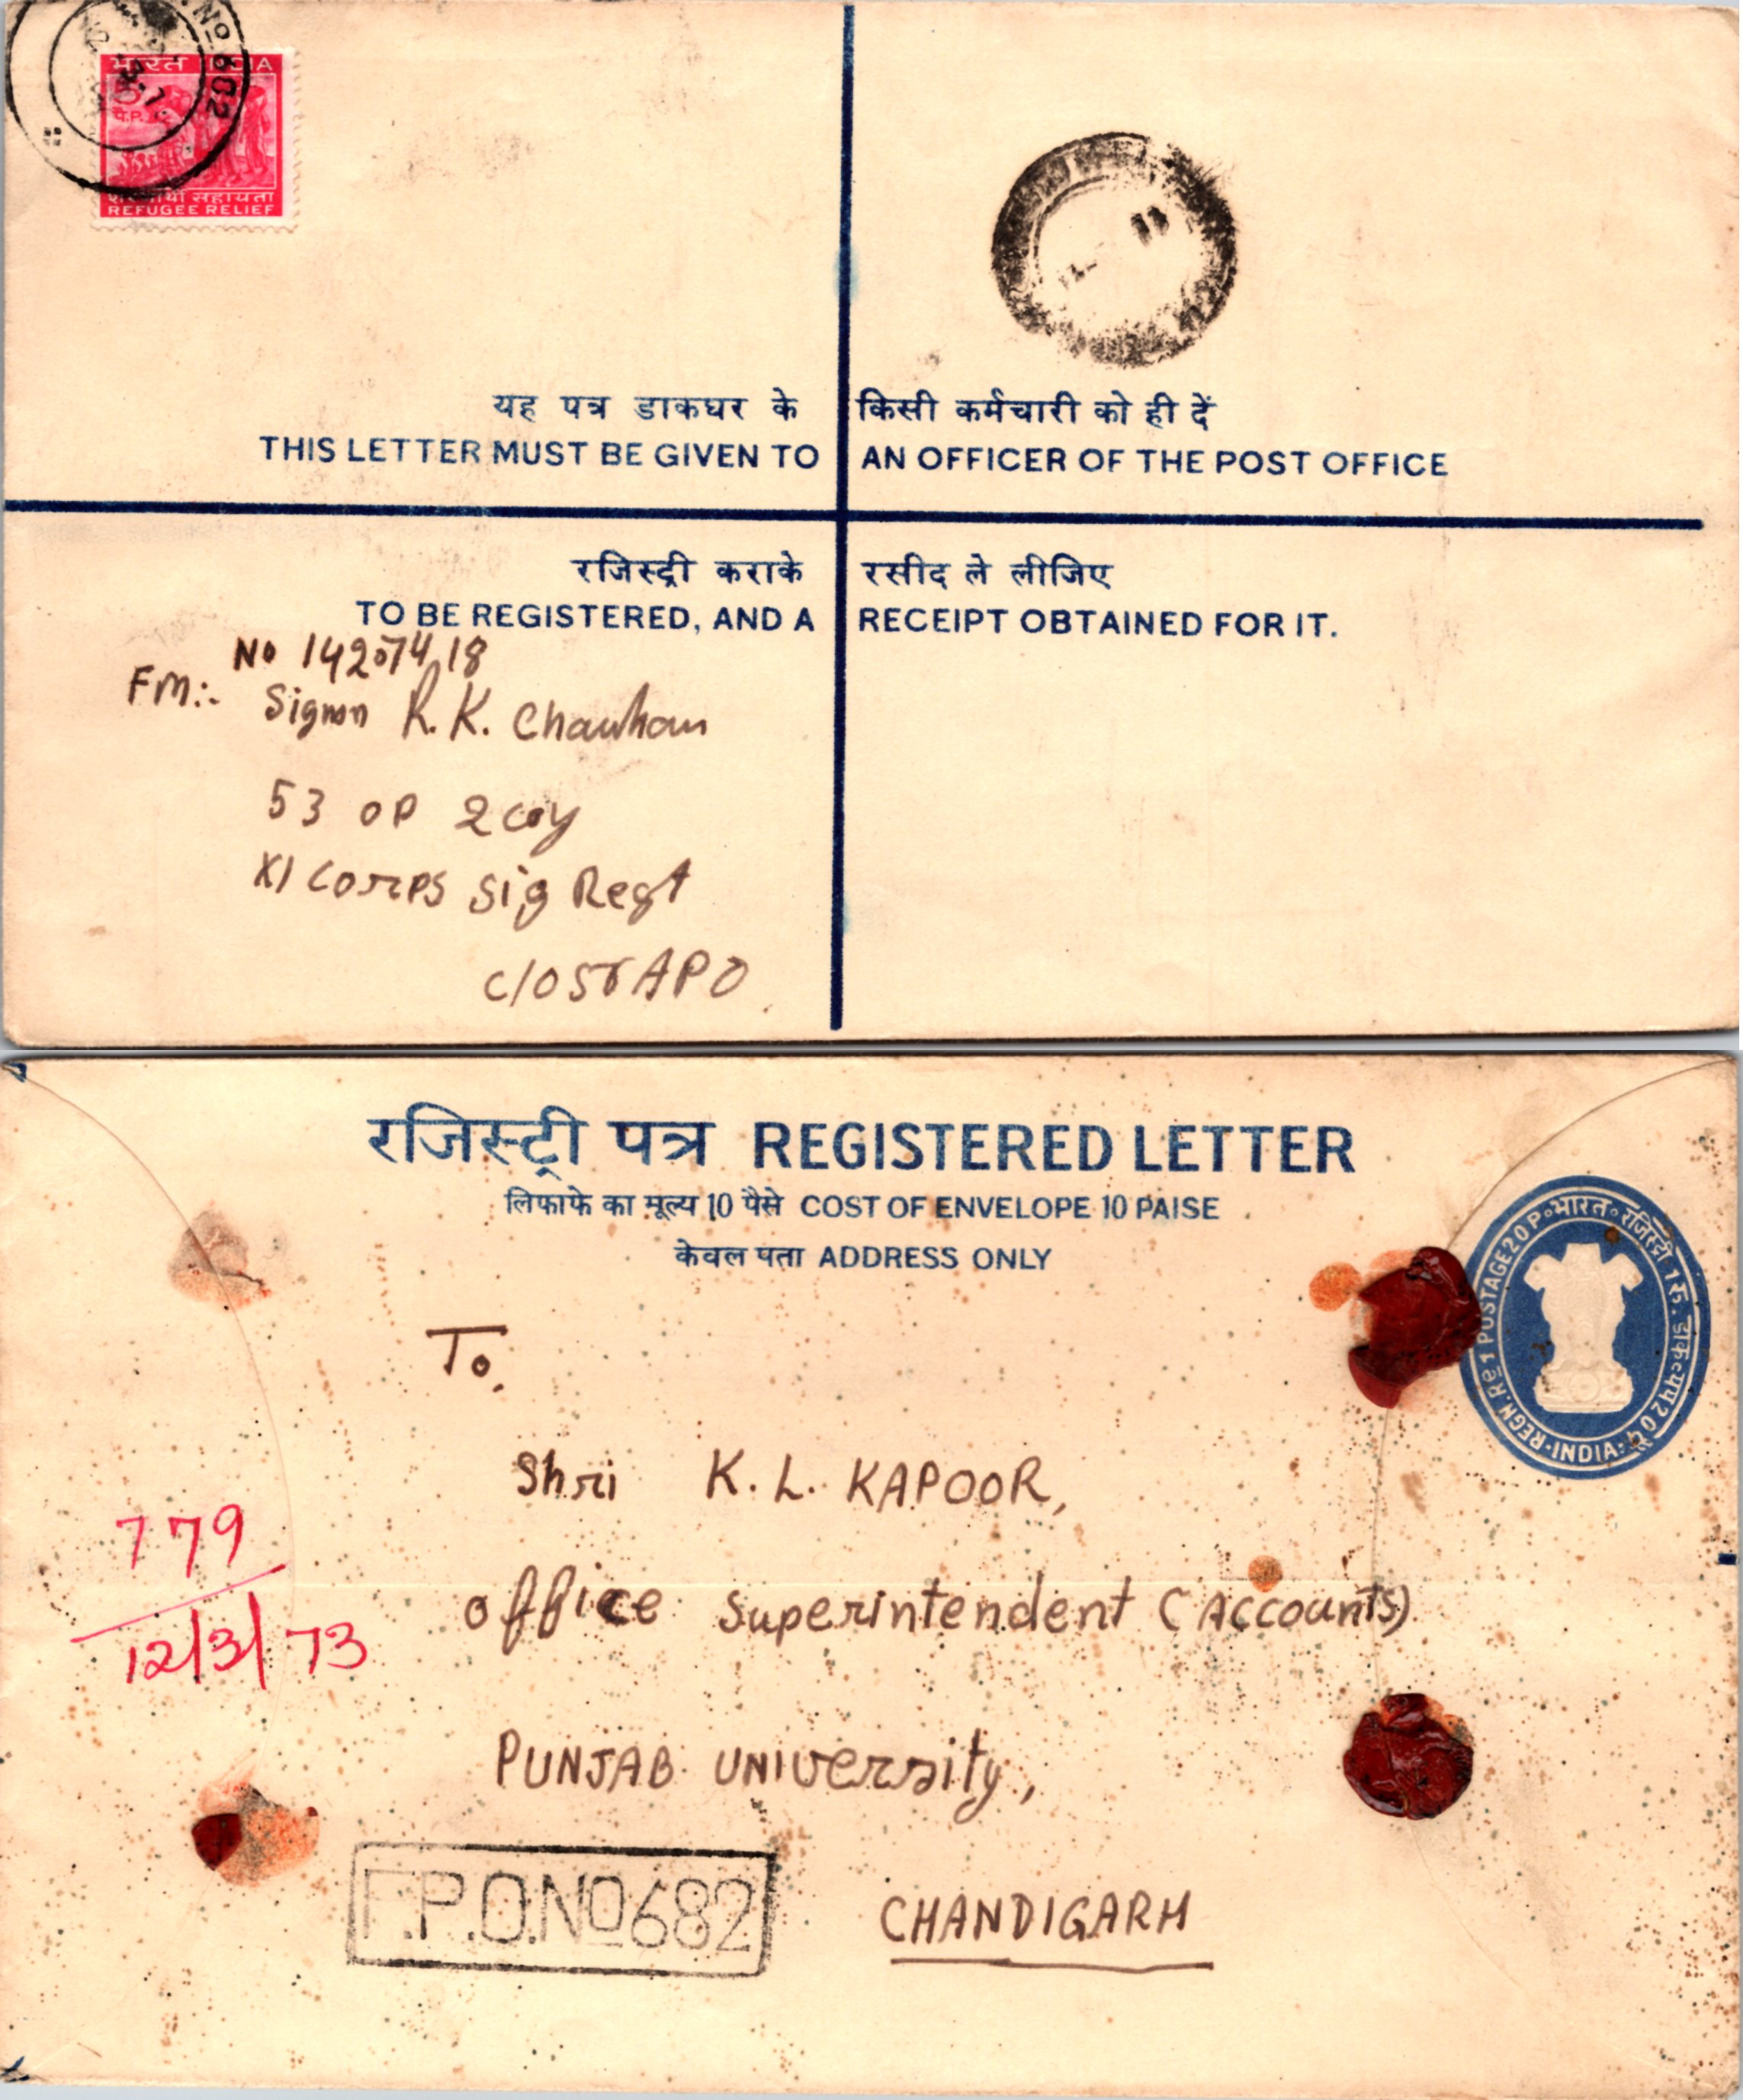 No 682
भारत INDIA
P.
शरणार्थी सहायता
REFUGEE RELIEF
यह पत्र डाकघर के किसी कर्मचारी को ही दें
THIS LETTER MUST BE GIVEN TO AN OFFICER OF THE POST OFFICE
रजिस्ट्री कराके रसीद ले लीजिए
TO BE REGISTERED, AND A RECEIPT OBTAINED FOR IT.
No 14207418
Fm:- Sigmn R.K. Chauhan
53 OP 2 coy
XI Corps Sig Regt
C/O 56 APO
रजिस्ट्री पत्र REGISTERED LETTER
लिफाफे का मूल्य 10 पैसे COST OF ENVELOPE 10 PAISE
केवल पता ADDRESS ONLY
REGN. Re 1 POSTAGE 20 P भारत रजिस्ट्री 1 रु. डाकव्यय 20 पै INDIA
To,
Shri K. L. KAPOOR,
office Superintendent (Accounts)
779
12/3/73
PUNJAB UNIversity,
F.P.O. No 682
CHANDIGARH